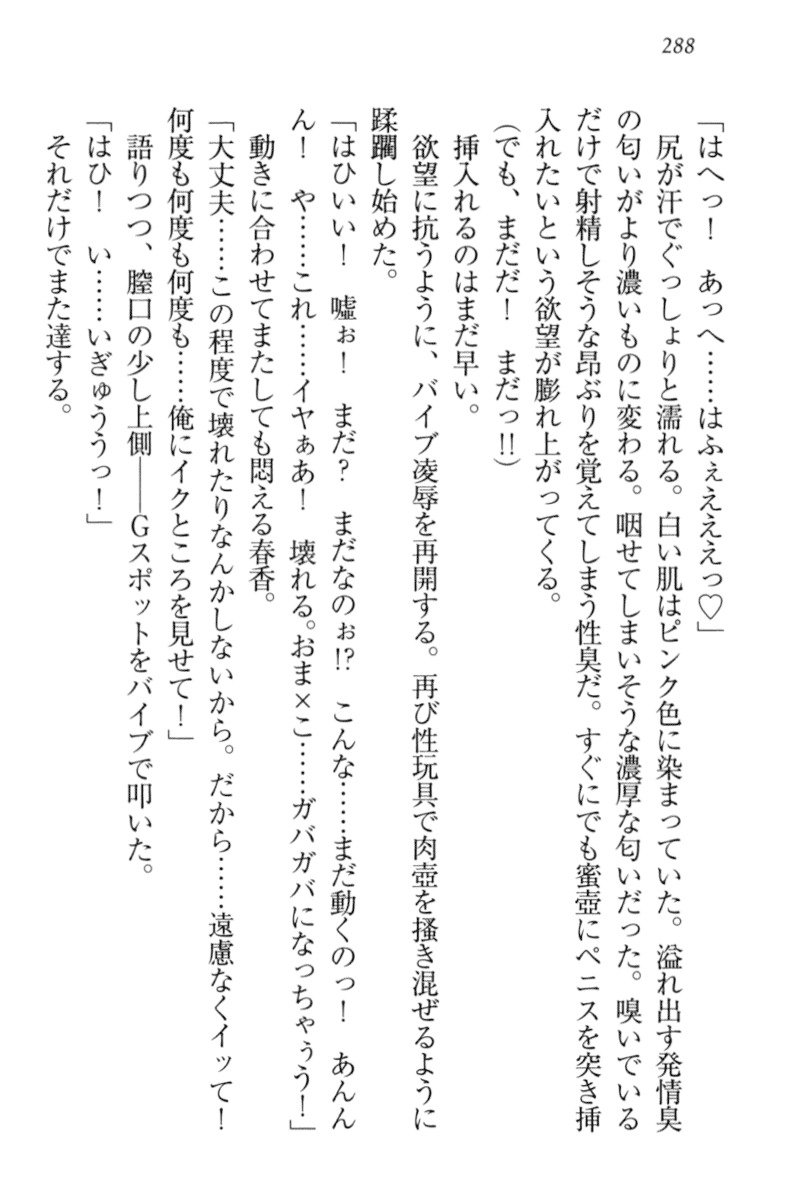 288
「はへっ！　あっへ……はふぇえええっ♡」
　尻が汗でぐっしょりと濡れる。白い肌はピンク色に染まっていた。溢れ出す発情臭
の匂いがより濃いものに変わる。咽せてしまいそうな濃厚な匂いだった。嗅いでいる
だけで射精しそうな昂ぶりを覚えてしまう性臭だ。すぐにでも蜜壺にペニスを突き挿
入れたいという欲望が膨れ上がってくる。
（でも、まだだ！　まだっ!!）
　挿入れるのはまだ早い。
　欲望に抗うように、バイブ凌辱を再開する。再び性玩具で肉壺を掻き混ぜるように
蹂躙し始めた。
「はひいい！　嘘ぉ！　まだ？　まだなのぉ!?　こんな……まだ動くのっ！　あんん
ん！　や……これ……イヤぁあ！　壊れる。おま×こ……ガバガバになっちゃぅう！」
　動きに合わせてまたしても悶える春香。
「大丈夫……この程度で壊れたりなんかしないから。だから……遠慮なくイッて！
何度も何度も何度も……俺にイクところを見せて！」
　語りつつ、膣口の少し上側――Gスポットをバイブで叩いた。
「はひ！　い……いぎゅううっ！」
　それだけでまた達する。